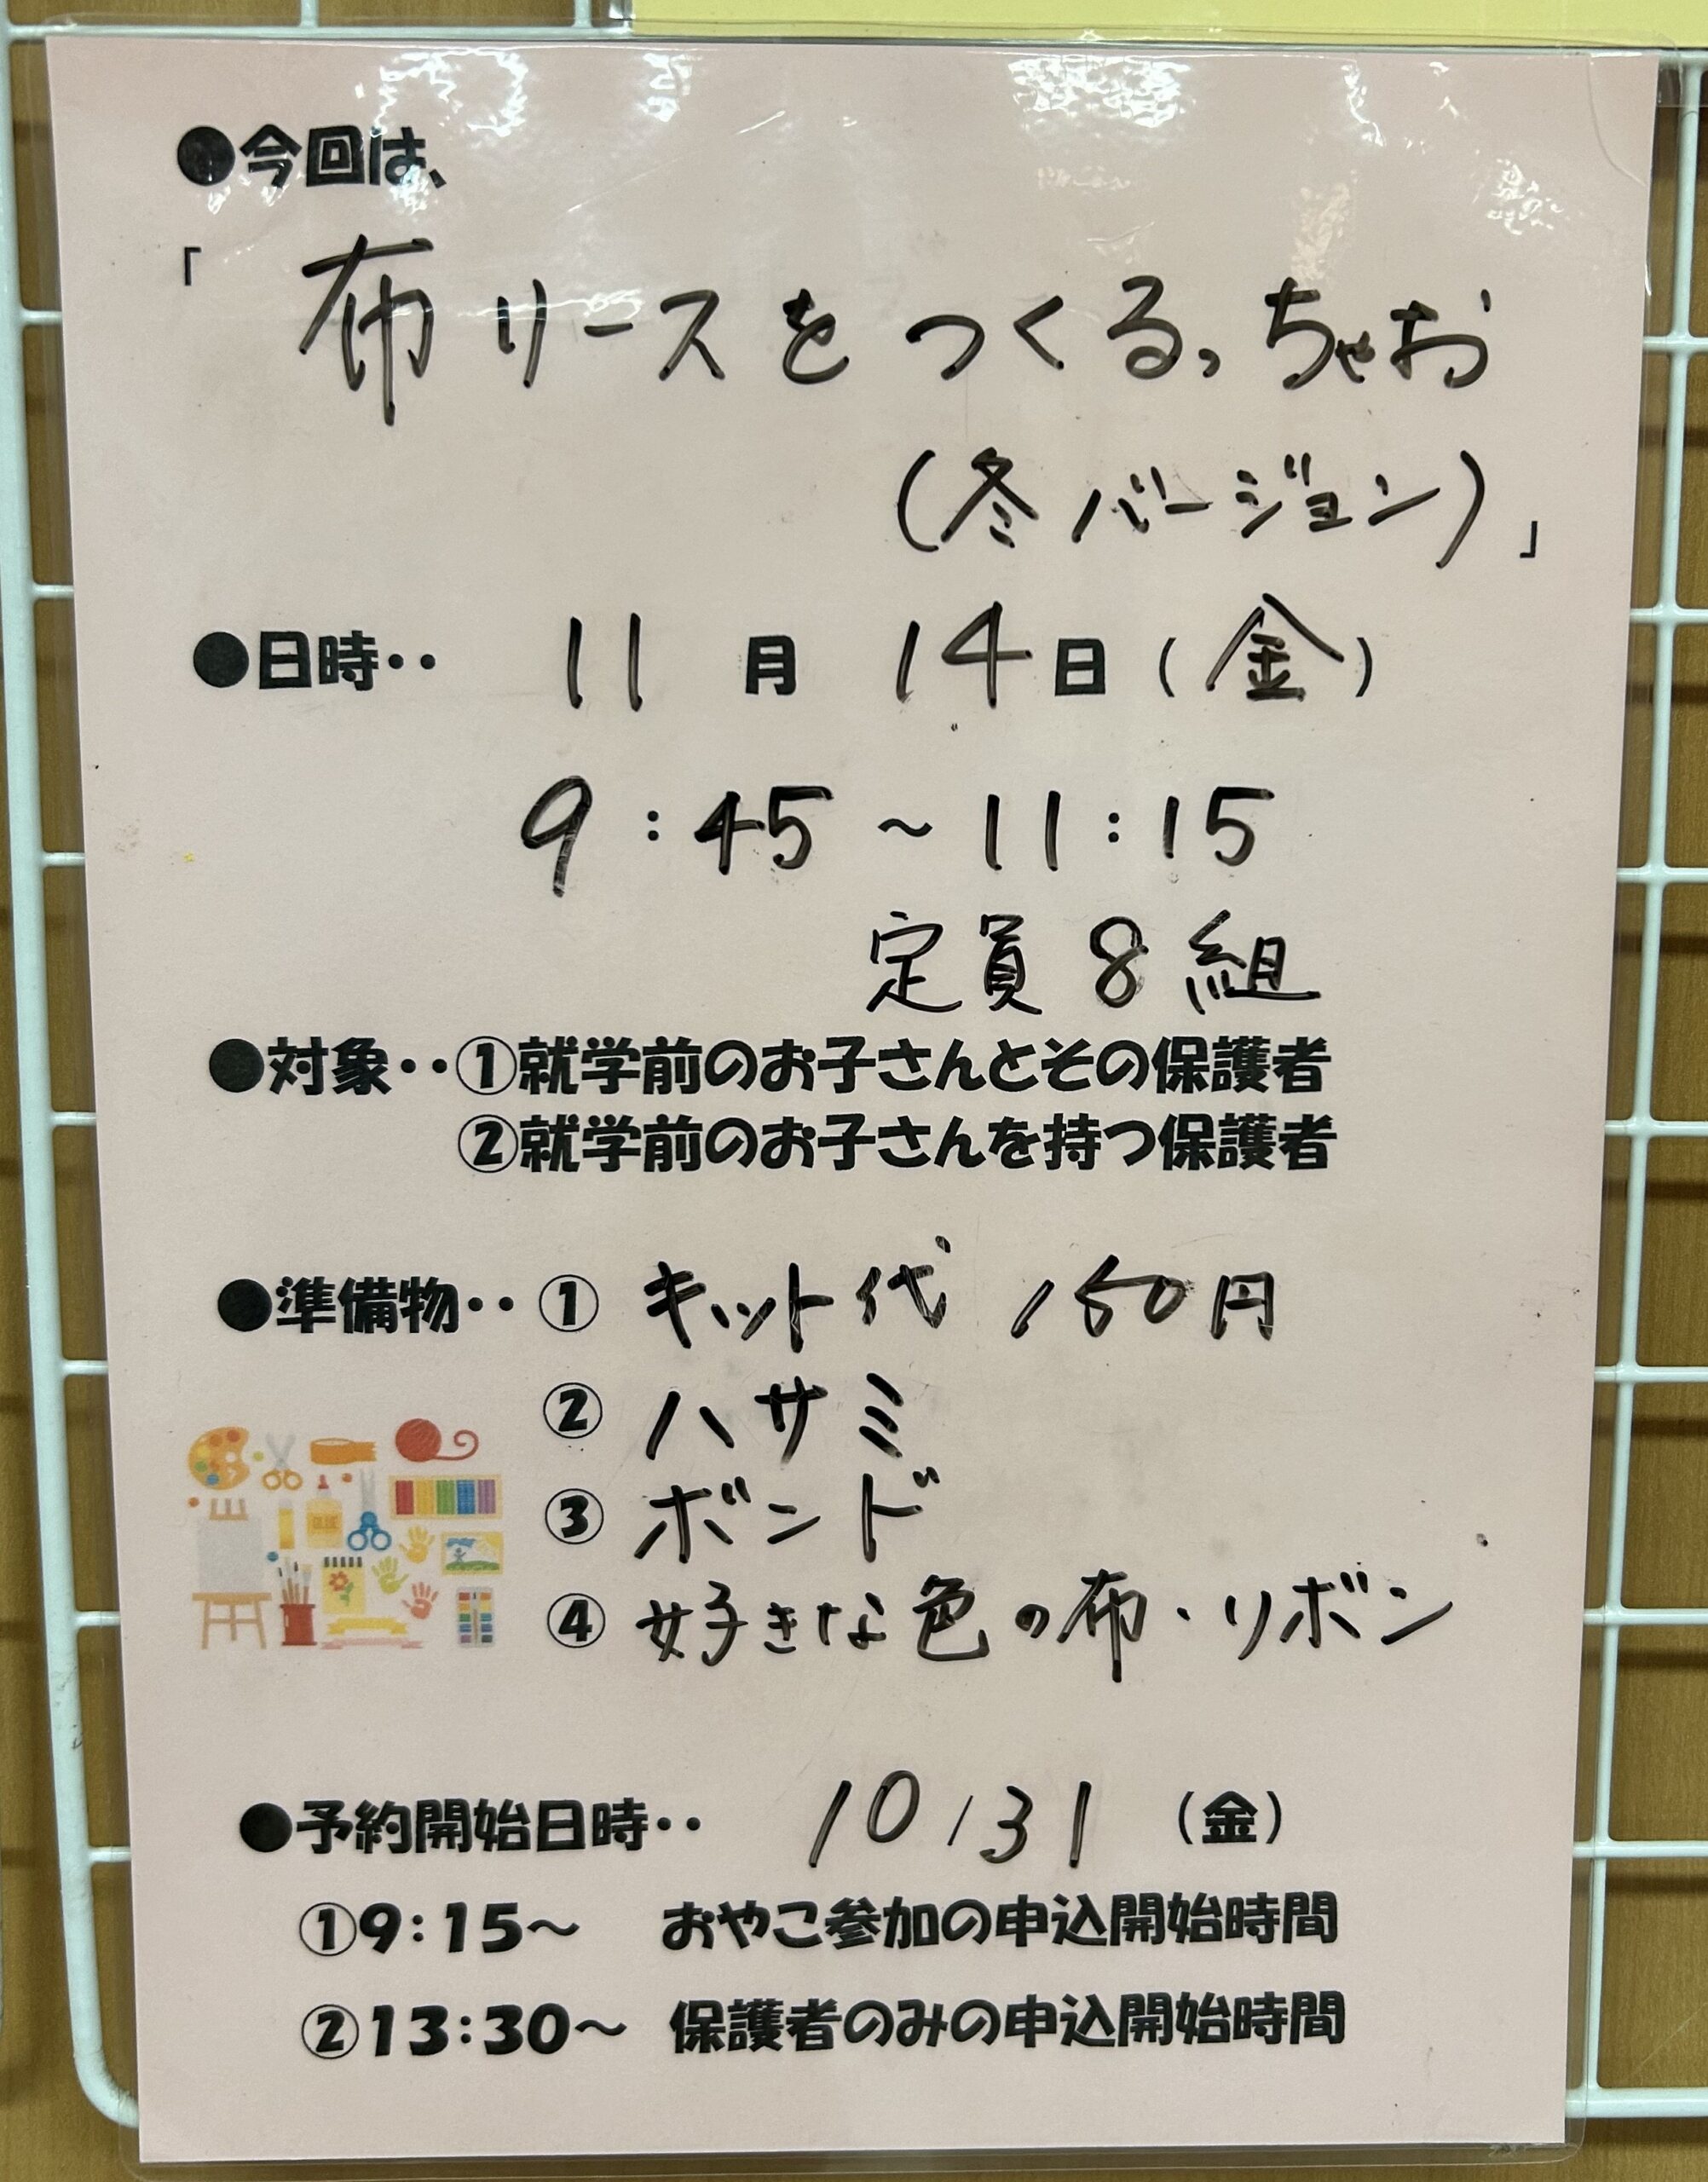 ●今回は、
「布リースをつくるっちゃお
(冬バージョン)」
●日時‥ 11月14日(金)
9:45～11:15
定員8組
●対象‥①就学前のお子さんとその保護者
②就学前のお子さんを持つ保護者
●準備物‥①キット代 150円
②ハサミ
③ボンド
④好きな色の布・リボン
●予約開始日時‥ 10/31 (金)
①9:15～ おやこ参加の申込開始時間
②13:30～ 保護者のみの申込開始時間